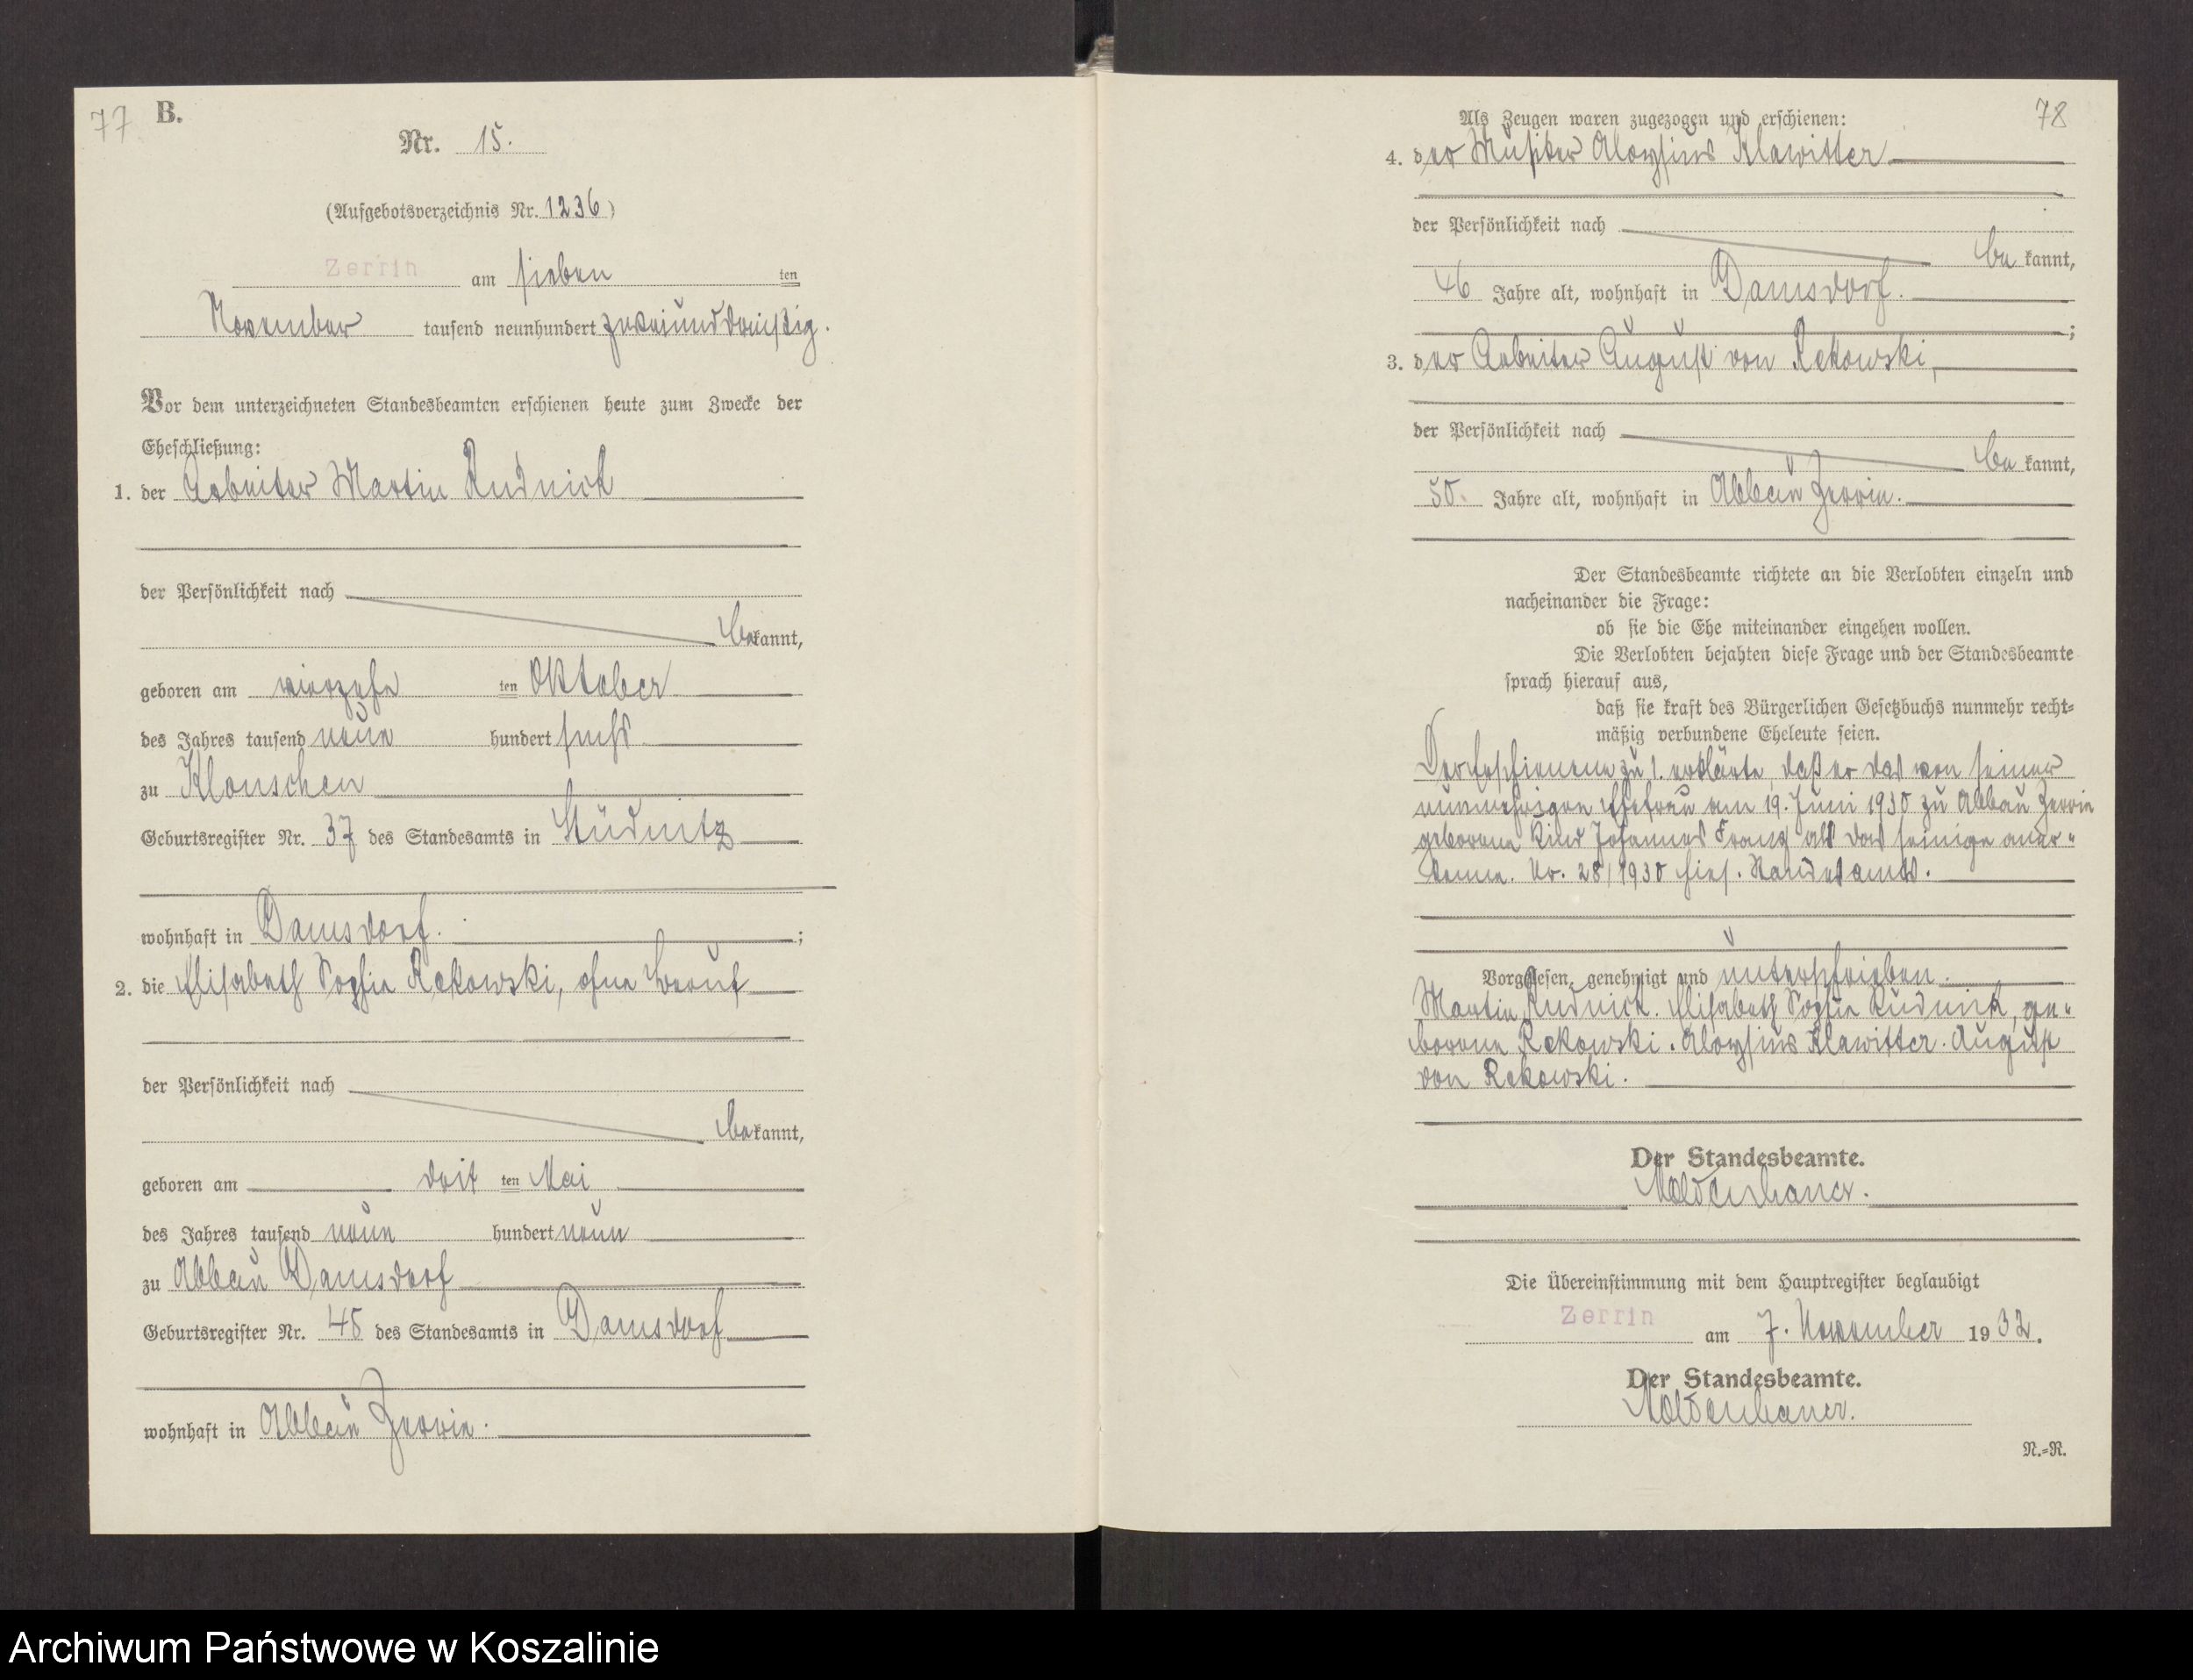 77
B.
Nr. 15.
(Aufgebotsverzeichnis Nr. 1236)
Zerrin am sieben ten
November tausend neunhundert zweiunddreißig.
Vor dem unterzeichneten Standesbeamten erschienen heute zum Zwecke der
Eheschließung:
1. der Arbeiter Martin Rudnick
der Persönlichkeit nach
bekannt,
geboren am vierzehn ten Oktober
des Jahres tausend neun hundert sechs
zu Klonschen
Geburtsregister Nr. 37 des Standesamts in Stüdnitz
wohnhaft in Damsdorf. ;
2. die Elisabeth Sophie Rekowski, ohne Beruf
der Persönlichkeit nach
bekannt,
geboren am drit ten Mai
des Jahres tausend neun hundert neun
zu Abbau Damsdorf
Geburtsregister Nr. 48 des Standesamts in Damsdorf
wohnhaft in Abbau Zerrin.
78
Als Zeugen waren zugezogen und erschienen:
4. der Musiker Aloysius Klawitter
der Persönlichkeit nach
be kannt,
46 Jahre alt, wohnhaft in Damsdorf.
;
3. der Arbeiter August von Rekowski,
der Persönlichkeit nach
be kannt,
50. Jahre alt, wohnhaft in Abbau Zerrin.
Der Standesbeamte richtete an die Verlobten einzeln und
nacheinander die Frage:
ob sie die Ehe miteinander eingehen wollen.
Die Verlobten bejahten diese Frage und der Standesbeamte
sprach hierauf aus,
daß sie kraft des Bürgerlichen Gesetzbuchs nunmehr recht-
mäßig verbundene Eheleute seien.
Der Erschienene zu 1. erklärte, daß er das von seiner
nunmehrigen Ehefrau am 19. Juni 1930 zu Abbau Zerrin
geborene Kind Johannes Franz als das seinige aner-
kenne. Nr. 28/1930 hies. Standesamts.
Vorgelesen, genehmigt und unterschrieben.
Martin Rudnick. Elisabeth Sophie Rudnick, ge-
borene Rekowski. Aloysius Klawitter. August
von Rekowski.
Der Standesbeamte.
Moldenhauer.
Die Übereinstimmung mit dem Hauptregister beglaubigt
Zerrin am 7. November 1932.
Der Standesbeamte.
Moldenhauer.
N.-R.
Archiwum Państwowe w Koszalinie